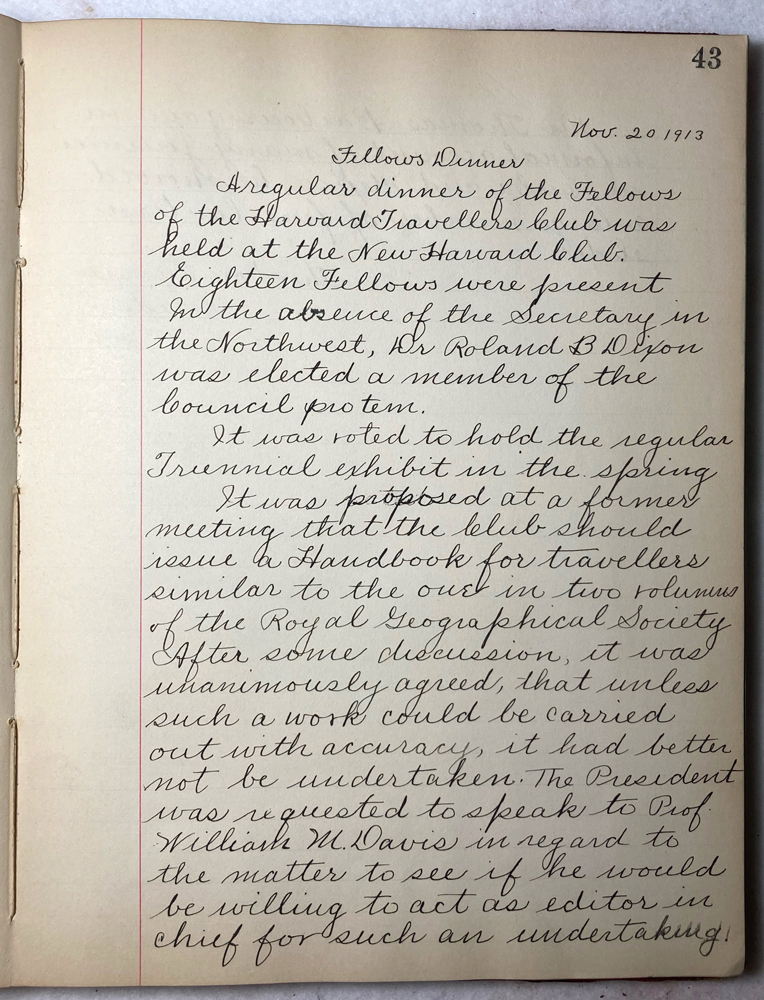 43
Nov. 20 1913
Fellows Dinner
A regular dinner of the Fellows
of the Harvard Travellers Club was
held at the New Harvard Club.
Eighteen Fellows were present
In the absence of the Secretary in
the Northwest, Dr Roland B Dixon
was elected a member of the
Council pro tem.
It was voted to hold the regular
Triennial exhibit in the spring
It was proposed at a former
meeting that the Club should
issue a Handbook for travellers
similar to the one in two volumns
of the Royal Geographical Society
After some discussion, it was
unanimously agreed, that unless
such a work could be carried
out with accuracy, it had better
not be undertaken. The President
was requested to speak to Prof.
William M. Davis in regard to
the matter to see if he would
be willing to act as editor in
chief for such an undertaking.